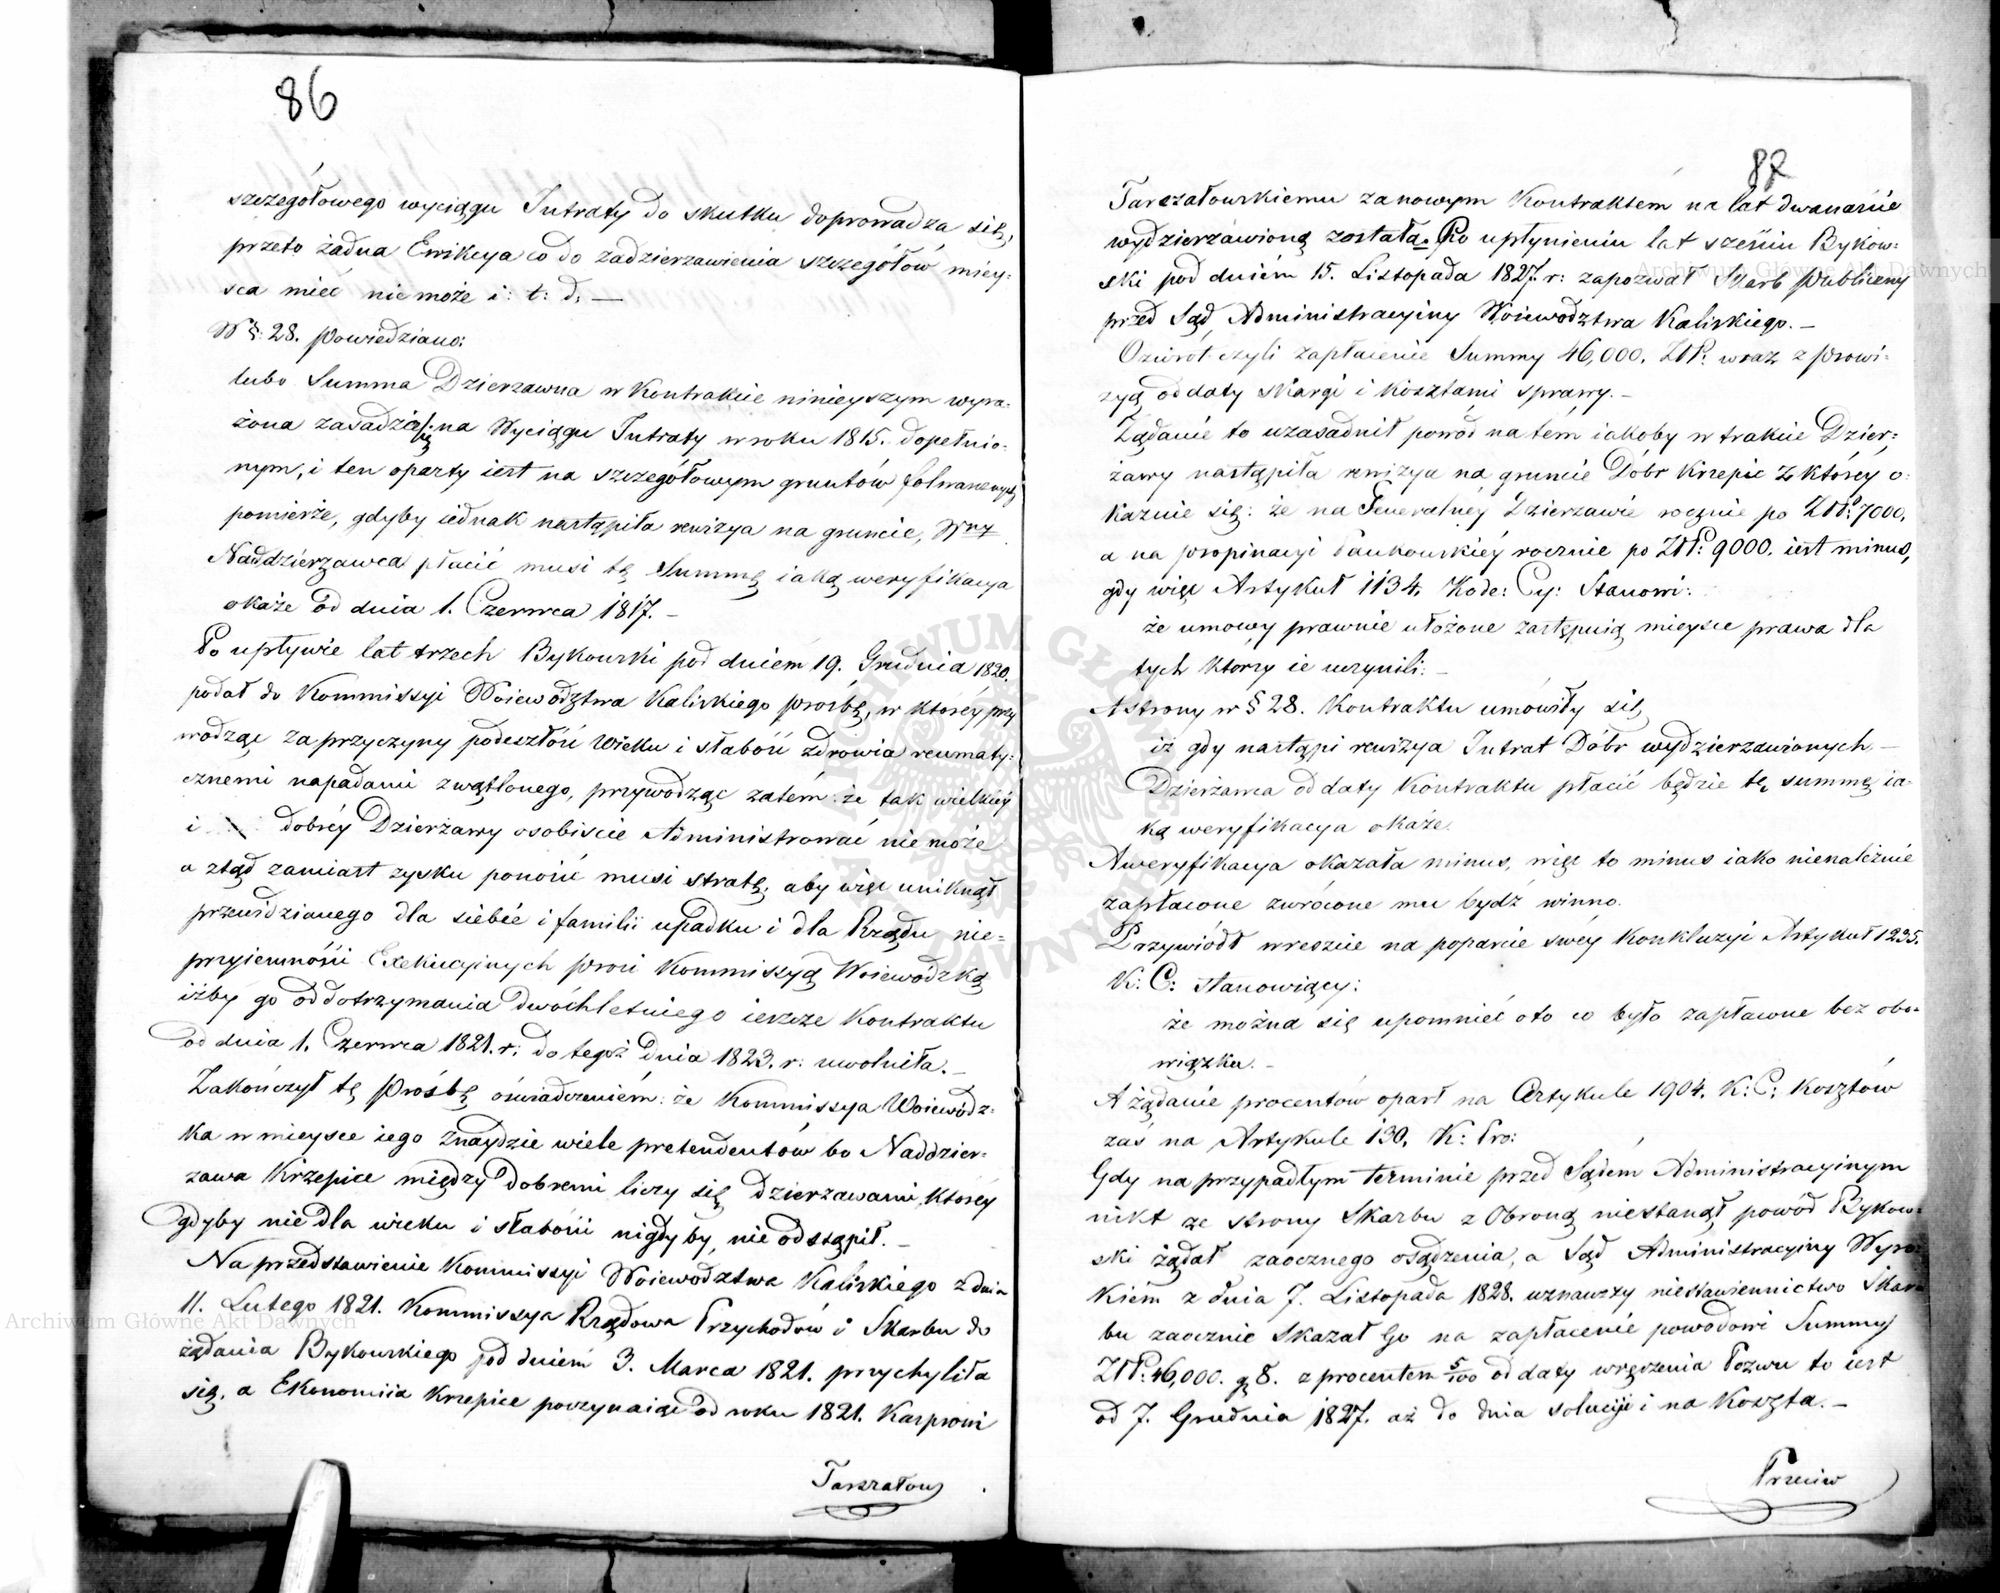 86
szczegółowego wyciągu Intraty do skutku doprowadza się,
przeto żadna Ewikcya co do zadzierzawienia szczegółów miey-
sca mieć nie może i: t: d. —
W §: 28. powiedziano:
lubo Summa Dzierzawna w Kontrakcie ninieyszym wyra-
żona zasadza się na Wyciągu Intraty w roku 1815. dopełnio-
nym, i ten oparty iest na szczegółowym gruntów folwarcznych
pomierze, gdyby iednak nastąpiła rewizya na gruncie, Wny
Naddzierzawca płacić musi tę Summę iaką weryfikacya
okaże od dnia 1. Czerwca 1817. —
Po upływie lat trzech Bykowski pod dniem 19. Grudnia 1820.
podał do Kommissyi Woiewództwa Kaliskiego prośbę, w którey przy
wodząc za przyczyny podeszłość wieku i słabość zdrowia reumaty:
cznemi napadami zwątlonego, przywodząc zatém: że tak wielkiéy
i dobréy Dzierżawy osobiście Administrować nie może
a ztąd zamiast zysku ponosić musi stratę, aby więc uniknąć
przewidzianego dla siebie i familii upadku i dla Rządu nie=
przyiemności Exekucyjnych prosi Kommissyą Woiewódzką
iżby go od dotrzymania dwóchletniego ieszcze Kontraktu
od dnia 1. Czerwca 1821. r: do tegoż dnia 1823. r: uwolniła. —
Zakończył tę prośbę oświadczeniem: że Kommissya Woiewódz-
ka w mieysce iego znaydzie wiele pretendentów bo Naddzier-
zawa Krzepice między dobremi liczy się dzierzawami, którey
gdyby nie dla wieku i słabości nigdyby nie odstąpił. —
Na przedstawienie Kommissyi Woiewództwa Kaliskiego z dnia
11. Lutego 1821. Kommissya Rządowa Przychodów i Skarbu do
żądania Bykowskiego pod dniem 3. Marca 1821. przychyliła
się, a Ekonomiia Krzepice poczynaiąc od roku 1821. Karpiowi
Tarszałow
87
Tarszałowskiemu za nowym Kontraktem na lat dwanaście
wydzierzawioną została. Po upłynieniu lat sześciu Bykow:
ski pod dniem 15. Listopada 1827. r: zapozwał Skarb Publiczny
przed Sąd Administracyiny Woiewództwa Kaliskiego. —
O zwrot czyli zapłacenie Summy 46,000. ZłP: wraz z prowi-
zyą od daty skargi i kosztami sprawy. —
Żądanie to uzasadnił powód na tém iakoby w trakcie Dzier:
żawy nastąpiła rewizya na gruncie Dóbr Krzepic z którey o:
kazuie się: że na Generalnéy Dzierzawie rocznie po ZłP: 7000.
a na propinacyi Pankowskiéy rocznie po ZłP: 9000. iest minus,
gdy więc Artykuł 1134. Kode: Cy: Stanowi:
że umowy prawnie ułożone zastępuią mieysce prawa dla
tych którzy ie uczynili: —
A strony w § 28. Kontraktu umówiły się
iż gdy nastąpi rewizya Intrat Dóbr wydzierzawionych —
Dzierżawca od daty Kontraktu płacić będzie tę summę ia-
ką weryfikacya okaże.
A weryfikacya okazała minus, więc to minus iako nienależnie
zapłacone zwrócone mu bydź winno.
Przywiódł wreszcie na poparcie swéy Konkluzyi Artykuł 1235.
K: C: stanowiący:
że można się upomnieć o to co było zapłacone bez obo-
wiązku. —
A żądanie procentów oparł na Artykule 1904. K: C: Kosztów
zaś na Artykule 130. K: Pro:
Gdy na przypadłym terminie przed Sądem Administracyinym
nikt ze strony Skarbu z Obroną niestanął powód Bykow-
ski żądał zaocznego osądzenia, a Sąd Administracyiny Wyro-
kiem z dnia 7. Listopada 1828. uznawszy niestawiennictwo Skar-
bu zaocznie Skazał Go na zapłacenie powodowi Summy
ZłP: 46,000. g 8. z procentem 5/100 od daty wręczenia Pozwu to iest
od 7. Grudnia 1827. aż do dnia solucyi i na Koszta. —
Przeciw